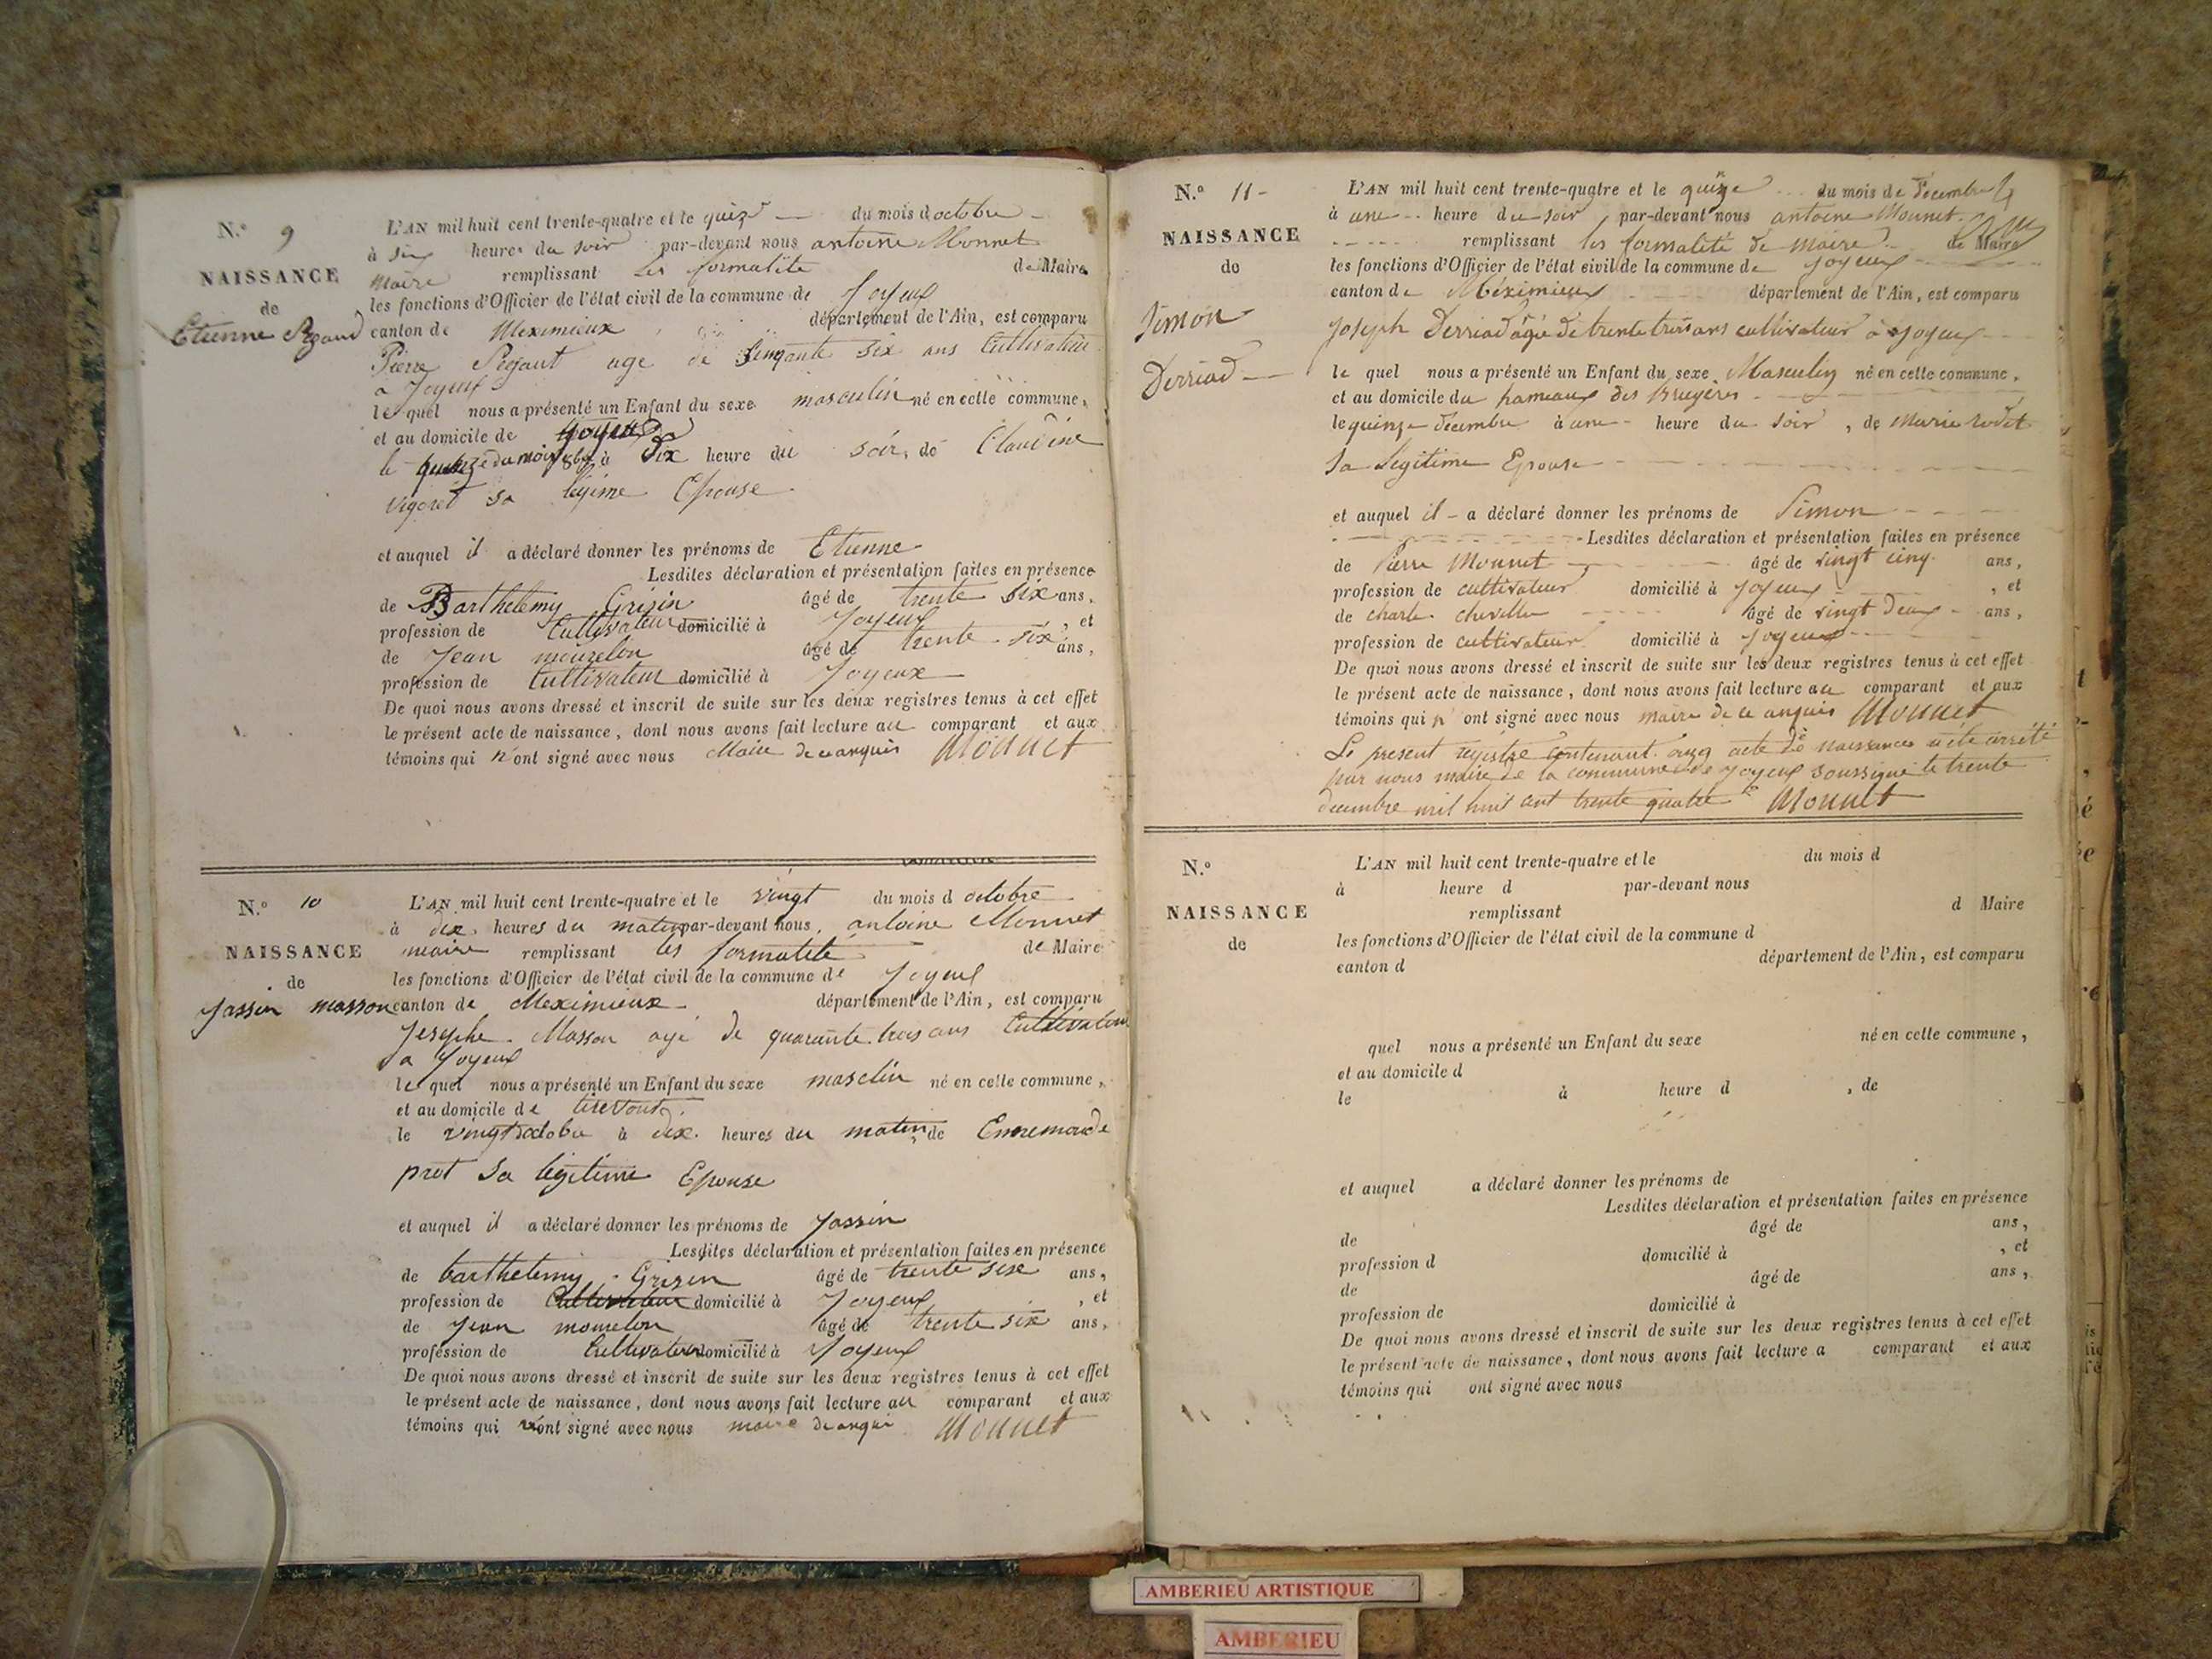 N.º 9
NAISSANCE
de
Etienne
L'AN mil huit cent trente-quatre et le quize du mois d octobre
à six heures du soir par-devant nous antoine Monnet
maire remplissant les formalité de Maire
les fonctions d'Officier de l'état civil de la commune de Joyeux
canton de Meximieux département de l'Ain, est comparu
Pierre age de six ans Cultivateur
a Joyeux
le quel nous a présenté un Enfant du sexe masculin né en cette commune,
et au domicile de Joyeux
le quinze du mois 8bre à Six heure du soir, de Claudine
sa Epouse
et auquel il a déclaré donner les prénoms de Etienne
Lesdites déclaration et présentation faites en présence
de Barthelemy Grisin âgé de trente Six ans,
profession de Cultivateur domicilié à Joyeux, et
de Jean âgé de trente-six ans,
profession de Cultivateur domicilié à Joyeux
De quoi nous avons dressé et inscrit de suite sur les deux registres tenus à cet effet
le présent acte de naissance, dont nous avons fait lecture au comparant et aux
témoins qui n'ont signé avec nous Maire de ce anquis Monnet
N.º 10
NAISSANCE
de
Jassin masson
L'AN mil huit cent trente-quatre et le vingt du mois d octobre
à dix heures du matin par-devant nous, antoine Monnet
maire remplissant les formalité de Maire
les fonctions d'Officier de l'état civil de la commune de Joyeux
canton de Meximieux département de l'Ain, est comparu
Josephe Masson agé de quarante trois ans Cultivateur
a Joyeux
le quel nous a présenté un Enfant du sexe masclin né en cette commune,
et au domicile de
le vingt doctobre à dix heures du matin, de Ennemonde
prot Sa légitime Epouse
et auquel il a déclaré donner les prénoms de Jassin
Lesdites déclaration et présentation faites en présence
de barthelemy Grisin âgé de trente sixe ans,
profession de Cultivateur domicilié à Joyeux, et
de Jean âgé de trente six ans,
profession de Cultivateur domicilié à Joyeux
De quoi nous avons dressé et inscrit de suite sur les deux registres tenus à cet effet
le présent acte de naissance, dont nous avons fait lecture au comparant et aux
témoins qui n'ont signé avec nous maire de anqui Monnet
N.º 11
NAISSANCE
de
Simon
Derriad
L'AN mil huit cent trente-quatre et le quinze du mois de Decembre
à une heure du soir par-devant nous antoine Monnet
remplissant les formalité de maire de Maire
les fonctions d'Officier de l'état civil de la commune de Joyeux
canton de Méximieux département de l'Ain, est comparu
Joseph Derriad agé de trente trois ans cultivateur à Joyeux
le quel nous a présenté un Enfant du sexe Masculin né en cette commune,
et au domicile du hameaux des Bruyères
le quinze decembre à une heure du soir, de Marie rodet
Sa Légitime Epouse
et auquel il a déclaré donner les prénoms de Simon
Lesdites déclaration et présentation faites en présence
de Pierre Monnet âgé de vingt cinq ans,
profession de cultivateur domicilié à Joyeux, et
de charle âgé de vingt deux ans,
profession de cultivateur domicilié à Joyeux
De quoi nous avons dressé et inscrit de suite sur les deux registres tenus à cet effet
le présent acte de naissance, dont nous avons fait lecture au comparant et aux
témoins qui n' ont signé avec nous maire de ce anquis Monnet
Le present registre contenant onze acte de naissances a été arrété
par nous maire de la commune de Joyeux soussigné le trente
decembre mil huit cent trente quatre Monnet
N.º
NAISSANCE
de
L'AN mil huit cent trente-quatre et le du mois d
à heure d par-devant nous
remplissant d Maire
les fonctions d'Officier de l'état civil de la commune d
canton d département de l'Ain, est comparu
quel nous a présenté un Enfant du sexe né en cette commune,
et au domicile d
le à heure d , de
et auquel a déclaré donner les prénoms de
Lesdites déclaration et présentation faites en présence
de âgé de ans,
profession d domicilié à , et
de âgé de ans,
profession de domicilié à
De quoi nous avons dressé et inscrit de suite sur les deux registres tenus à cet effet
le présent acte de naissance, dont nous avons fait lecture a comparant et aux
témoins qui ont signé avec nous
AMBERIEU ARTISTIQUE
AMBERIEU